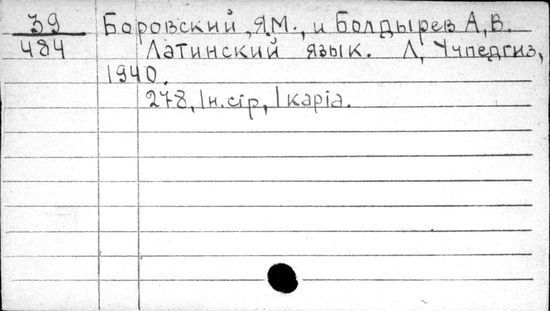 39 Боровский, Я.М., и Болдырев А.В.
484 Латинский язык. Л, Учпедгиз,
1940.
278, Iн.сір, I каріа.